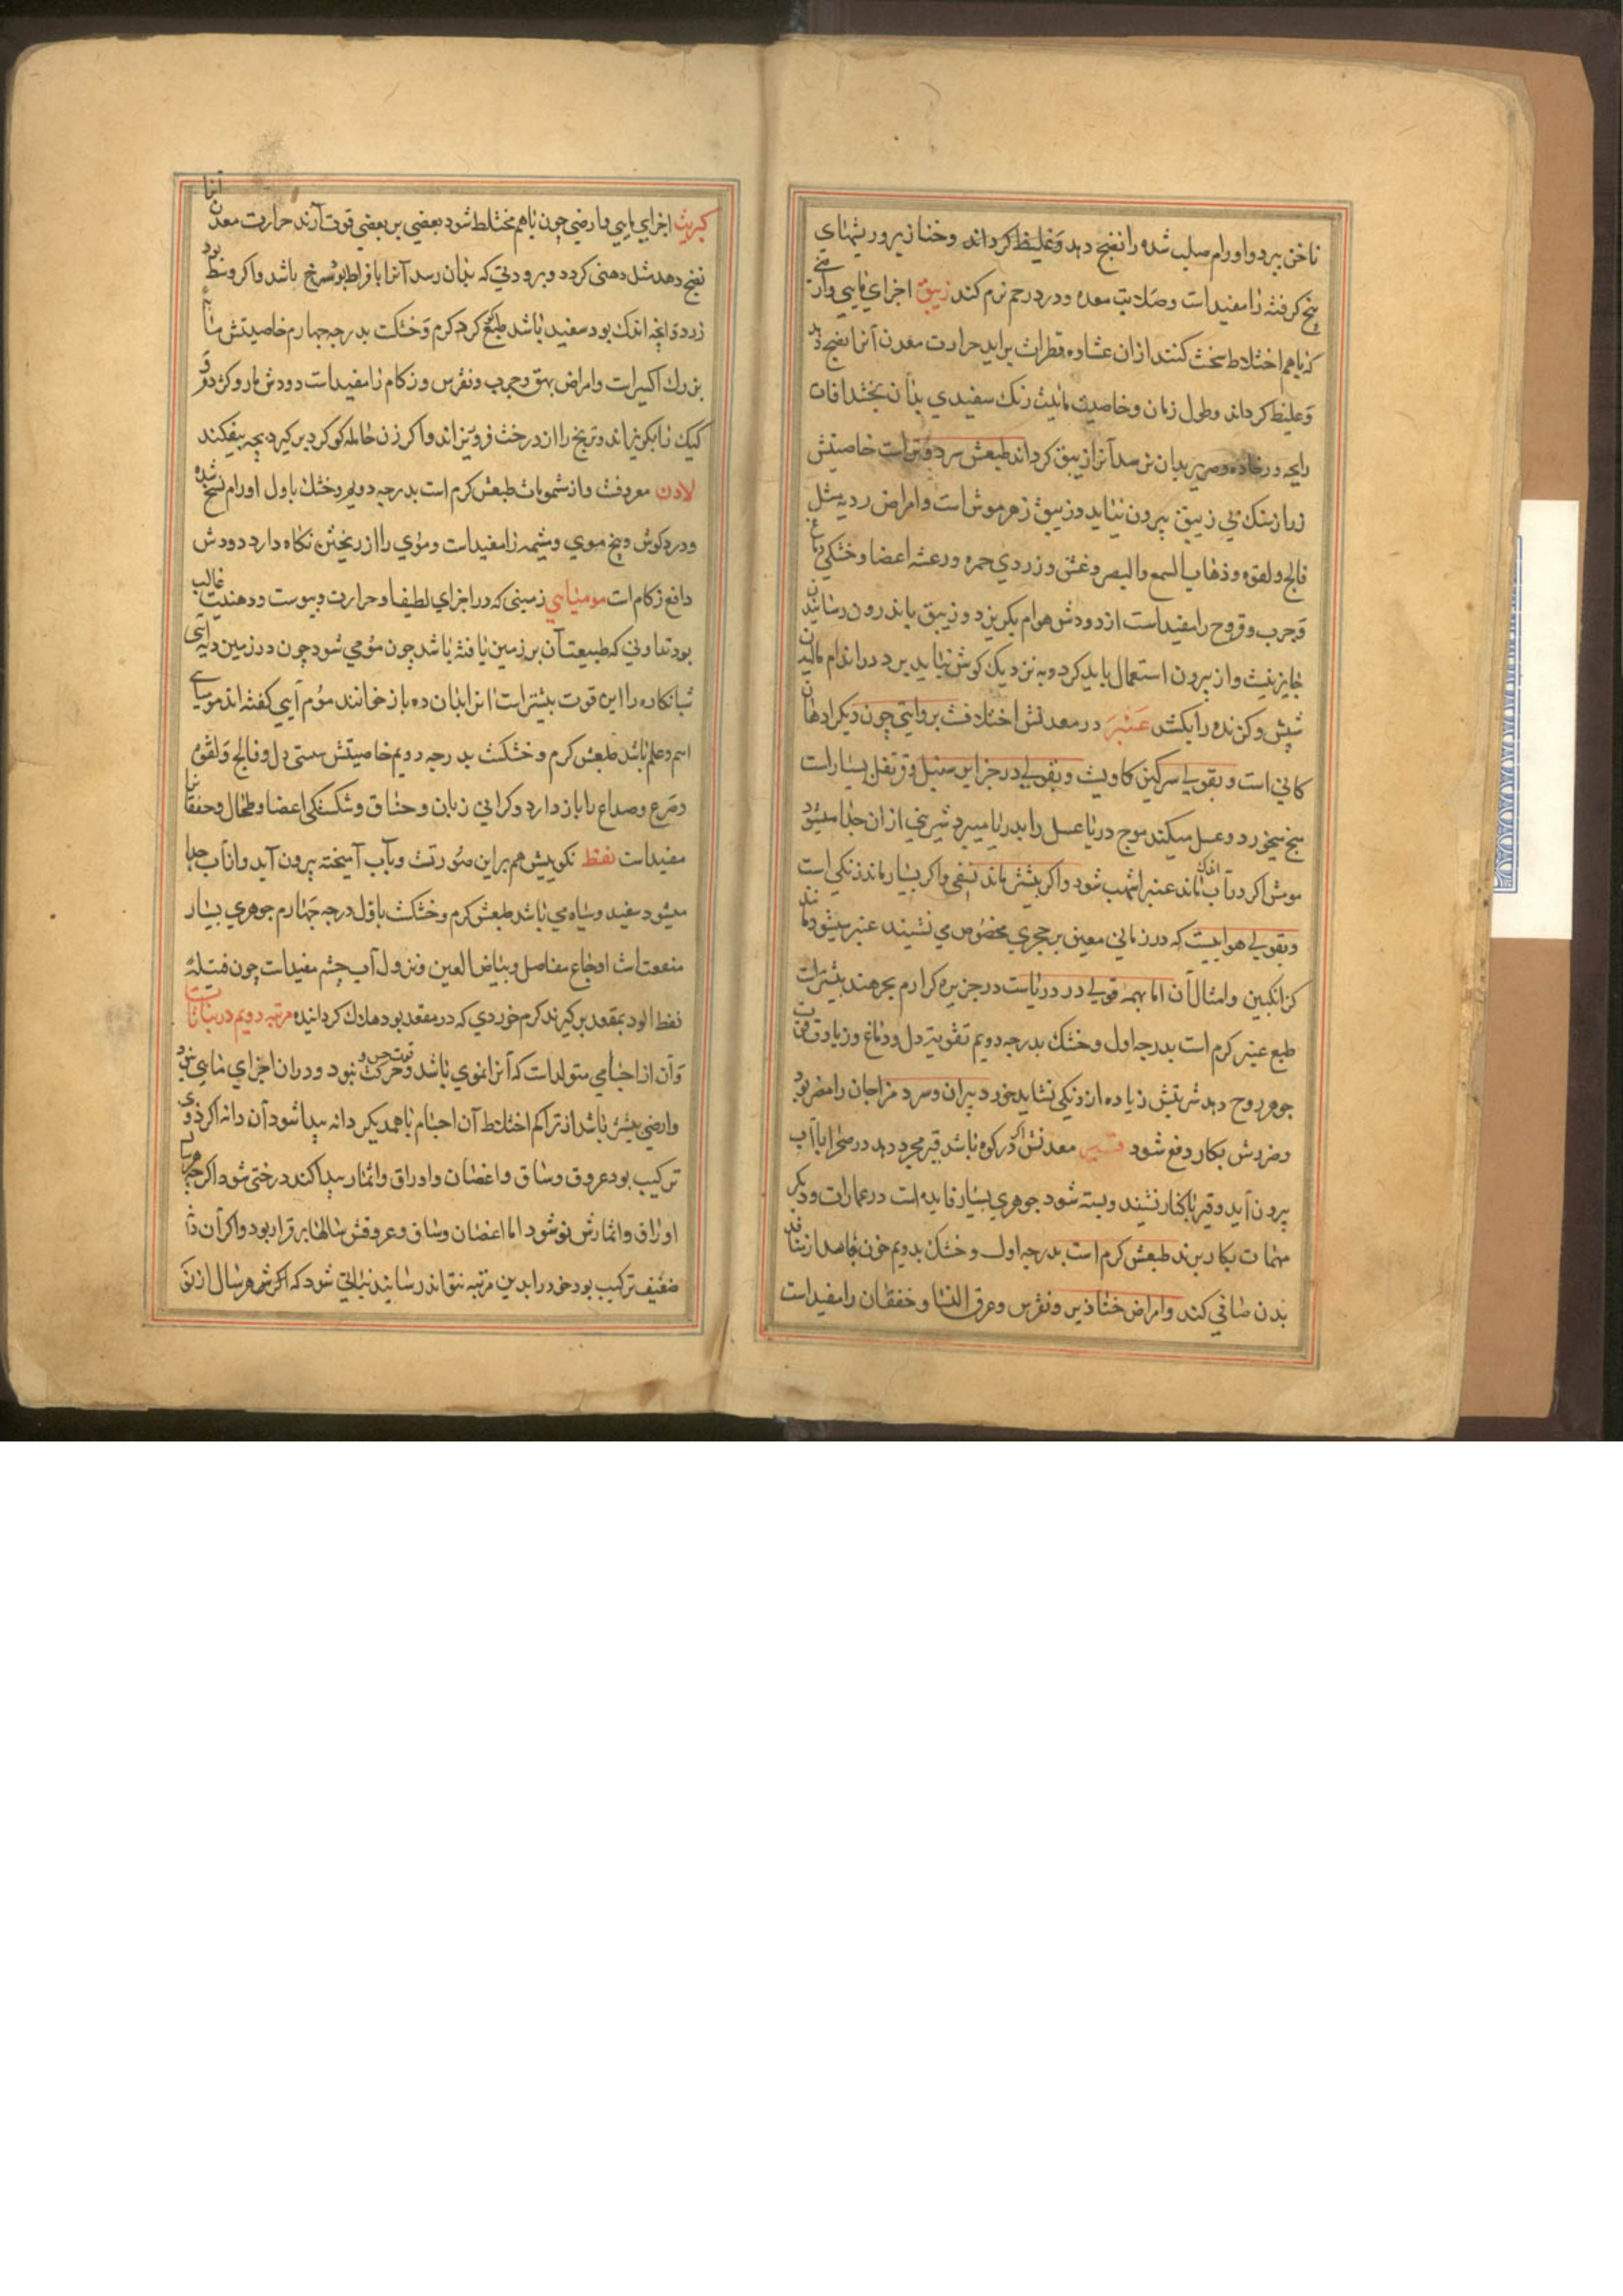 ناخن ببرد و اورام صلب شده را نضج دهد وغلیظ کرداند وخنازیر و ریشهای
بنج کرفته را مفیداست وصلابت معده ودرد رحم نرم کند زیبق اجزای مایی وارضی
که باهم اختلاط سخت کنند ازان غشاوه قطرات براید حرارت معدن آنرا نضج دهد
وغلیظ کرداند وطول زمان وخاصیت مائیت رنک سفیدی بدان بخشد افات
رایحه در خانه وصریر بدان نرسد آنرا زیبق کرداند طبعش سرد وتراست خاصیتش
زر از سنک بی زیبق بیرون نیاید وزیبق زهر موش است وامراض ردیه مثل
فالج ولقوه وذهاب السمع والبصر وغشی وزردی حمره ورعشه اعضا وخشکی دماغ
وجرب وقروح را مفیداست از دودش هوام بکریزد وزیبق باندرون رسانیدن
جایز نیست واز بیرون استعمال باید کرد وبه نزدیک کوش نباید برد در اندام مالیدن
شپش وکزنده را بکشد عنبر در معدنش اختلافست بروایتی چون دیکر ادهان
کانی است وبقولی سرکین کاویست وبقولی در جزایر سنبل وقرنفل بسیاراست
منج میخورد وعسل میکند موج دریا عسل را بدریا میبرد شیرینی ازان جدا میشود
مومش اکر در آب اندک ماند عنبر اشهب شود واکر بیشتر ماند بنفسی واکر بسیار ماند زنکی است
وبقولی هواییست که در زمانی معین بر حجری مخصوص می نشیند عنبر میشود مانند
کزانکبین وامثال آن اما بهمه قولی در دریاست در جزیره کرارم بحر هند بیشتراست
طبع عنبر کرم است بدرجه اول وخشک بدرجه دویم تقویت دل ودماغ وزیادتی
جوهر روح دهد شربتش زیاده از دنکی نشاید خورد پیران وسرد مزاجان را مضر بود
وضررش بکار دفع شود قیر معدنش اکر در کوه باشد قیر مجرد دهد در صحرا با آب
بیرون آید وقیر باکنار نشیند وبسته شود جوهری بسیار فایده است در عمارات ودیکر
مهمات بکار برند طبعش کرم است بدرجه اول وخشک بدویم خون جامد از
بدن صافی کند وامراض خنازیر ونقرس وعرق النسا وخفقان را مفیداست
کبریت اجزای مایی وارضی چون باهم مختلط شود بعضی بر بعضی قوت آرند حرارت معدن آنرا
نضج دهد مثل دهنی کردد وبرودتی که بدان رسد آنرا بافراط بود سرخ باشد واکر وسط بود
زرد وانچه اندک بود سفید باشد طبع کوکرد کرم وخشکست بدرجه چهارم خاصیتش
بزرک اکسیرات وامراض بهق وجرب ونقرس وزکام را مفیداست دودش مار وکژدم و
کیک را بکریزاند وترنج را از درخت فرو ریزاند واکر زن حامله کوکرد برکیرد بچه بیفکند
لادن معروفست واز مشمومات طبعش کرم است بدرجه دویم وخشک باول اورام سخ شده
ودرد کوش وبیخ موی ومشیمه را مفیداست وموی را از ریختن نکاه دارد دودش
دافع زکام است مومیایی زمینی که در اجزای لطیف او حرارت ویبوست ودهنیت غالب
بود تعاونی که طبیعت آن بر زمین یافته باشد چون مومی شود چون در زمین دیه آبی
شبانکاره را این قوت بیشتراست انرا بدان ده باز خوانند موم آبی کفته اند مومیایی
اسم وعلم باشد طبعش کرم وخشکست بدرجه دویم خاصیتش سستی دل وفالج ولقوه
وصرع وصداع را باز دارد وکرانی زبان وخناق وشکستکی اعضا وطحال وخفقان را
مفیداست نفط تکوینش هم براین صورتست وبآب آمیخته بیرون آید واز آب جدا
میشود سفید وسیاه می باشد طبعش کرم وخشکست باول درجه چهارم جوهری بسیار
منفعت است اوجاع مفاصل وبیاض العین ونزول آب چشم مفیدات چون فتیله
نفط الود بمقعد برکیرند کرم خوردی که در مقعد بود هلاک کرداننده مرتبه دویم در نباتات
وآن از اجسامی متولداست که آنرا نموی باشد وقوت حس وحرکت نبود ودران اجزای مایی بود
وارضی بیشتر باشد از تراکم اختلاط آن اجسام باهمدیکر دانه پیدا شود آن دانه اکر قوی
ترکیب بود عروق وساق واغصان واوراق واثمار پیدا کند درختی شود اکرچه هر سال
اوراق واثمارش نو شود اما اغصان وساق وعروقش سالها برقرار بود واکر آن دانه
ضعیف ترکیب بود خود را بدین مرتبه نتواند رسانید نباتی شود که اکرش هر سال از نو